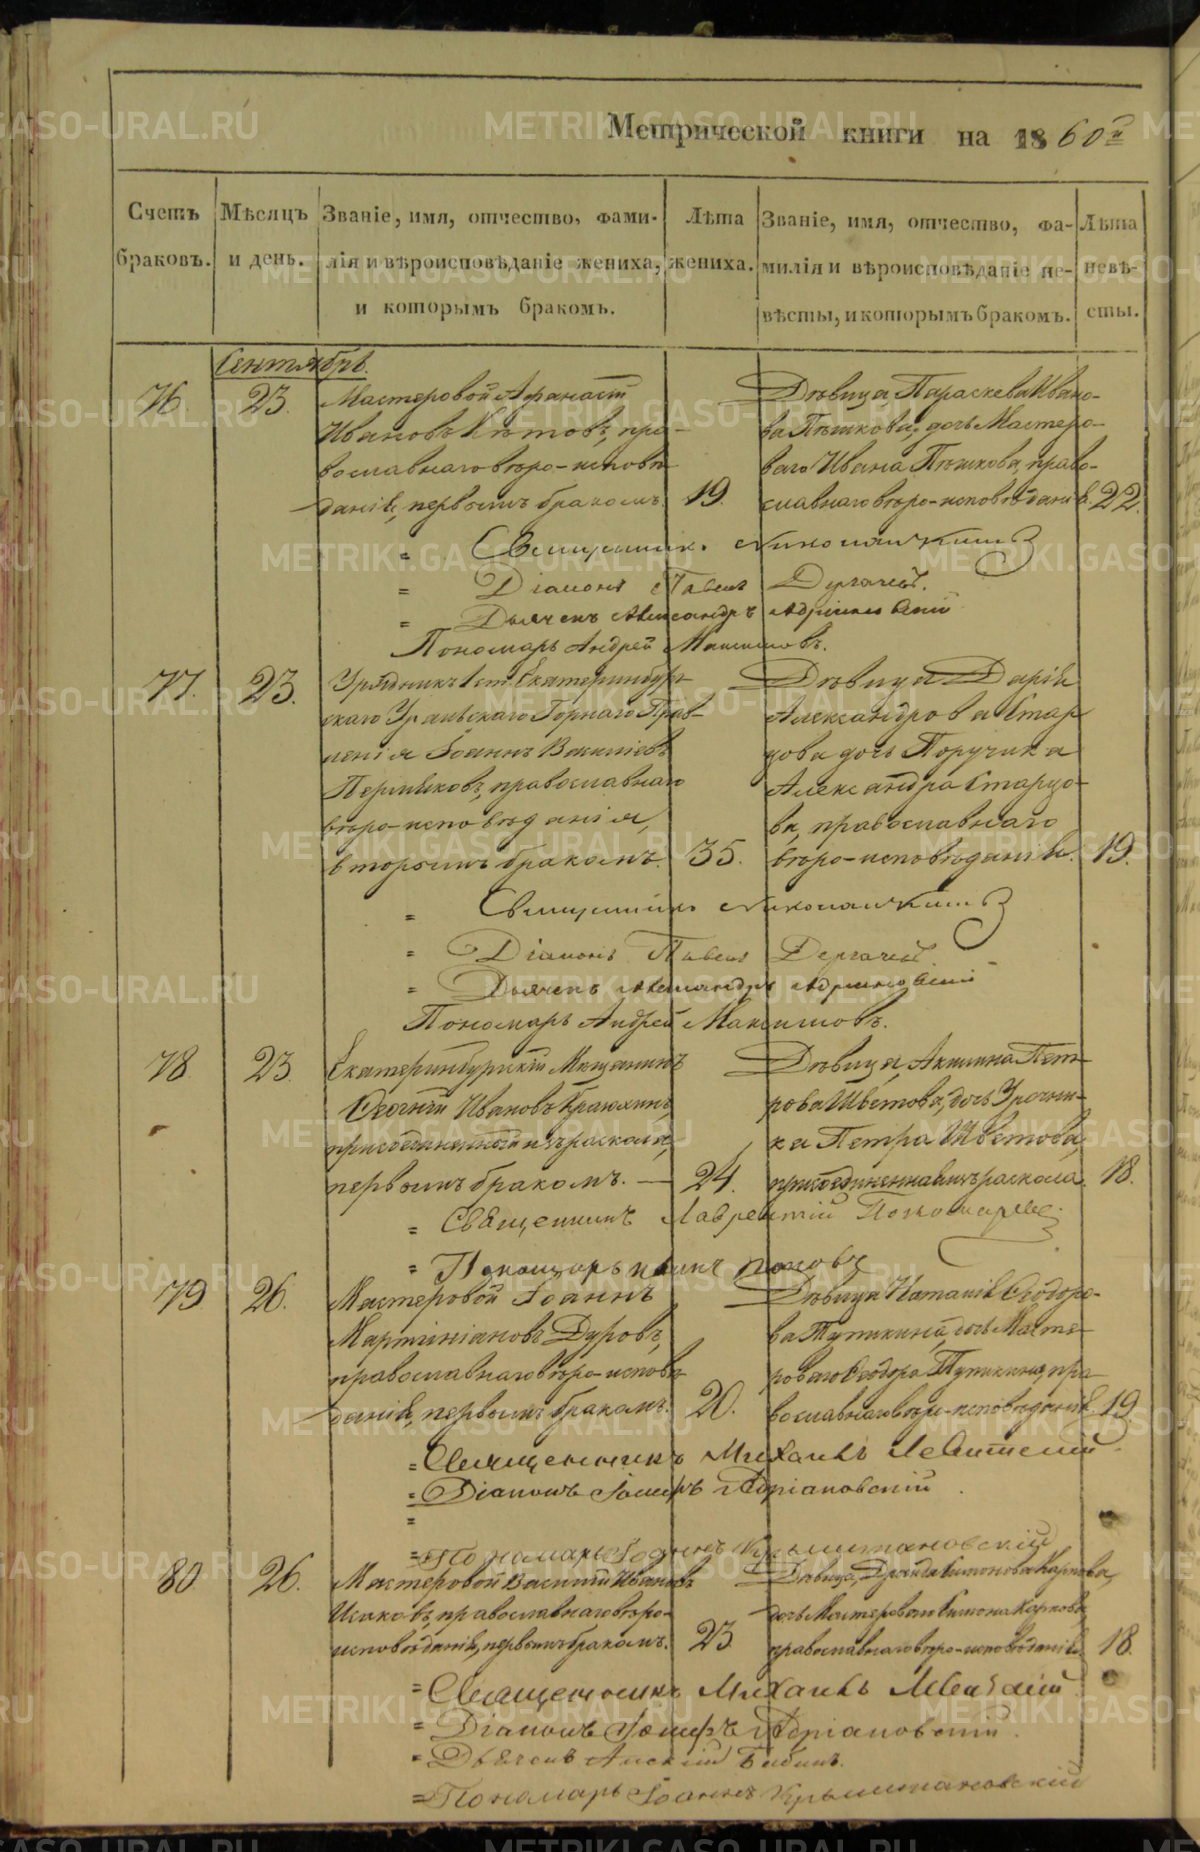 Метрической книги на 1860й
Счетъ браковъ.
Мѣсяцъ и день.
Званіе, имя, отчество, фамилія и вѣроисповѣданіе жениха, и которымъ бракомъ.
Лѣта жениха.
Званіе, имя, отчество, фамилія и вѣроисповѣданіе невѣсты, и которымъ бракомъ.
Лѣта невѣсты.
Сентябрь.
76
23.
Мастеровой Афанасій
Ивановъ Кѣтовъ, пра-
вославнаго вѣро-исповѣ
данія, первымъ бракомъ.
19.
Дѣвица, Параскева Ивано-
ва Пѣшкова, дочь Мастеро-
ваго Ивана Пѣшкова, право-
славнаго вѣро-исповѣданія.
22.
= Священникъ
= Діаконъ Павелъ Дергачевъ.
= Дьячекъ Александръ Адріановскій
Пономарь Андрей Максимовъ.
77.
23.
Урядникъ 1 ст. Екатеринбург
скаго Уральскаго Горнаго Прав-
ленія Іоаннъ Василіевъ
Пермяковъ, православнаго
вѣро-исповѣданія,
вторымъ бракомъ.
35.
Дѣвица Дарія
Александрова Стар
цова дочь Поручика
Александра Старцо-
ва, православнаго
вѣро-исповѣданія.
19.
= Священникъ
= Діаконъ Павелъ Дергачевъ
= Дьячекъ Александръ Адріановскій
Пономарь Андрей Максимовъ.
78
23.
Екатеринбургскій Мѣщанинъ
Георгій Ивановъ
присоединенный изъ раскола,
первымъ бракомъ. —
24.
Дѣвица, Акилина Пет-
рова Швѣтова, дочь Урочни-
ка Петра Швѣтова,
присоединенная изъ раскола.
18.
= Священникъ Лаврентій Пономаревъ
= Пономарь Поповъ
79
26.
Мастеровой Іоаннъ
Мартиніановъ Дуровъ,
православнаго вѣро-исповѣ
данія, первымъ бракомъ.
20.
Дѣвица Наталія Ѳеодоро-
ва Тупикина, дочь Масте-
роваго Ѳеодора Тупикина, пра
вославнаго вѣро-исповѣданія.
19
= Священникъ Михаилъ Левитскій
= Діаконъ Іосифъ Адріановскій
=
= Пономарь Іоаннъ
80
26.
Мастеровой Василій Ивановъ
Исаковъ, православнаго вѣро-
исповѣданія, первымъ бракомъ.
23
Дѣвица, Симонова Карпова,
дочь Мастероваго Симона Карпова,
православнаго вѣро-исповѣданія.
18.
= Священникъ Михаилъ Левитскій
= Діаконъ Іосифъ Адріановскій.
= Дьячекъ Алексій Бабинъ.
= Пономарь Іоаннъ
METRIKI.GASO-URAL.RU